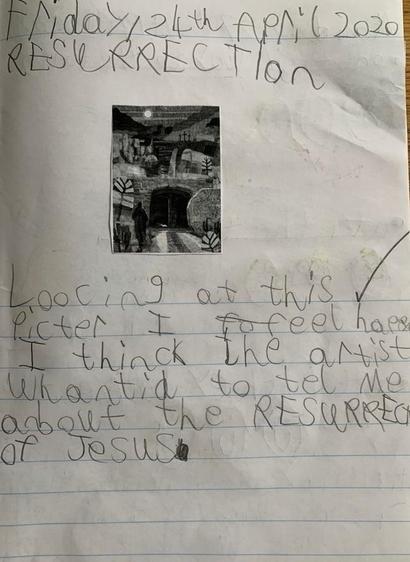 Friday, 24th April 2020
RESURRECTIon
Loocing at this
Picter I feel
I thinck the artist
whantid to tel Me
about the RESURREC
of JESUS